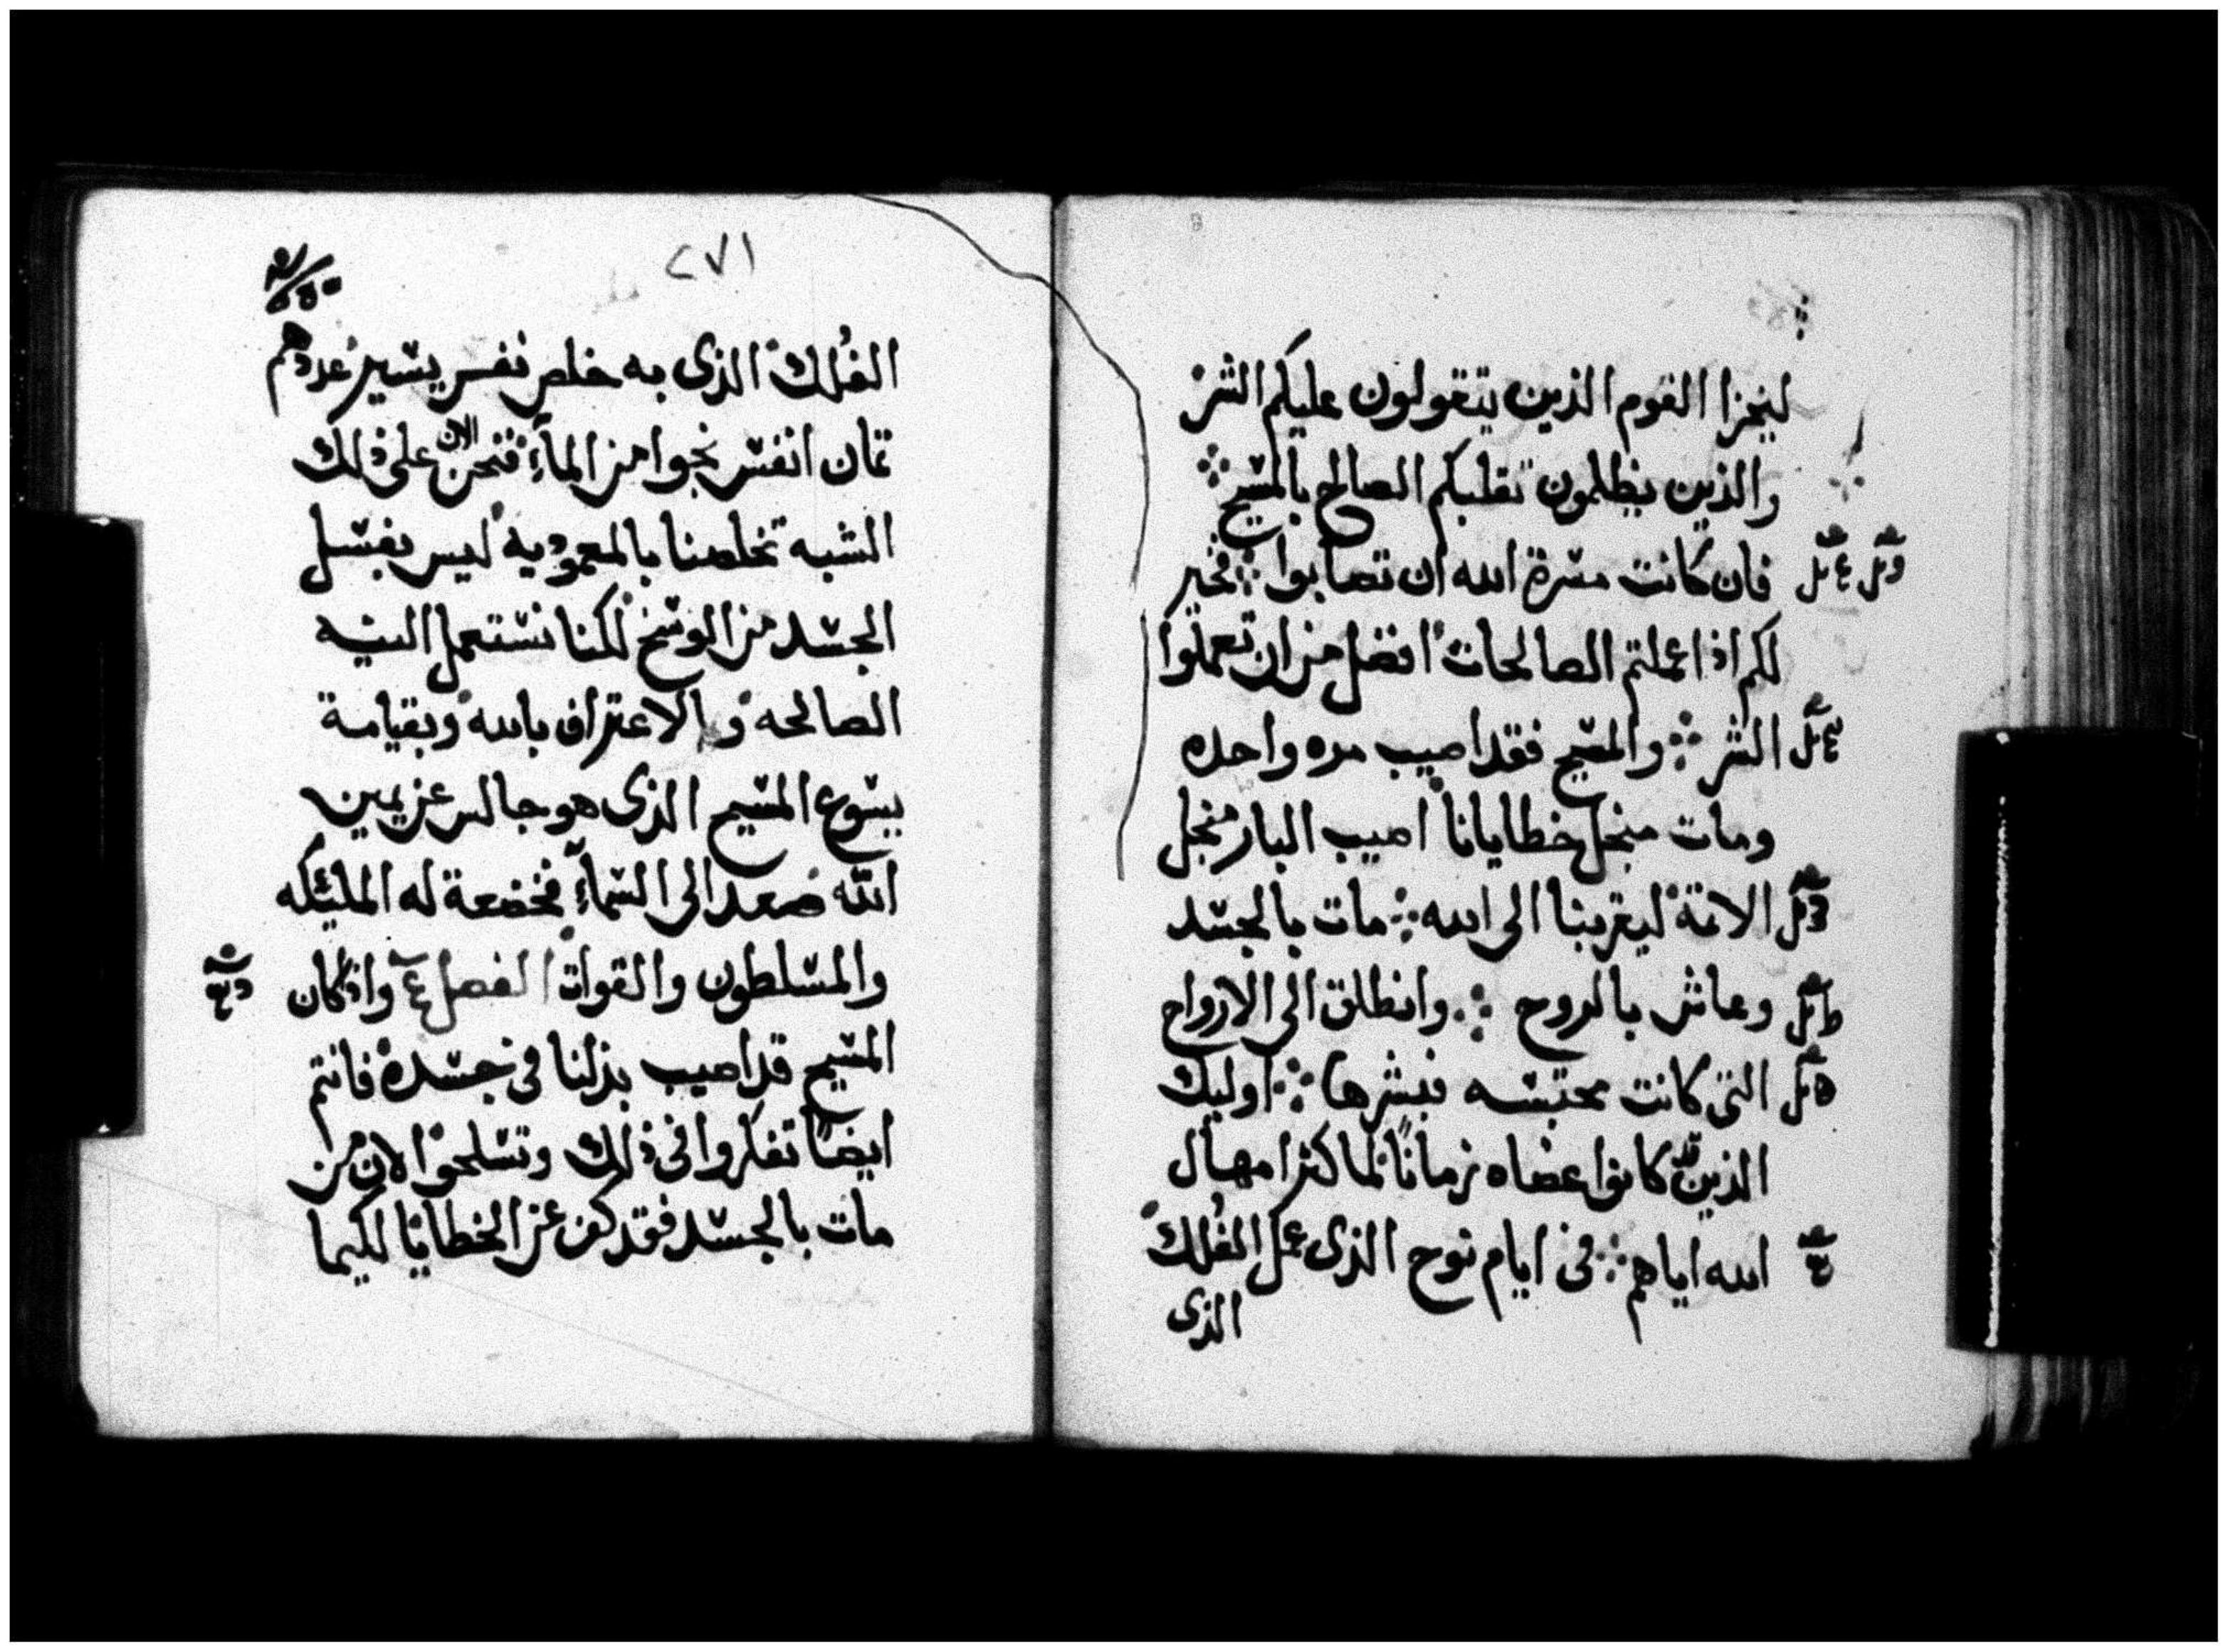 ليخزا القوم الذين يتقولون عليكم الشر
والذين يظلمون تقلبكم الصالح بالمسيح
فان كانت مسرة الله ان تصابوا فخير
لكم اذا عملتم الصالحات افضل من ان تعملوا
الشر والمسيح فقد اصيب مره واحده
ومات منجل خطايانا اصيب البار منجل
الاثمة ليقربنا الى الله مات بالجسد
وعاش بالروح وانطلق الى الارواح
التى كانت محتبسه فبشرها اوليك
الذين كانوا عصاه زمانا لما كثر امهال
الله اياهم فى ايام نوح الذى عمل الفُلك
الذى
٢٧١
الفُلك الذى به خلص نفس يسير عددهم
ثمان انفس نجوا من المآء فنحن الان على ذلك
الشبه تخلصنا بالمعموديه ليس بغسل
الجسد من الوسخ لكنا نستعمل النيه
الصالحه والاعتراف بالله وبقيامة
يسوع المسيح الذى هو جالس عن يمين
الله صعد الى السمآء فخضعة له المليكه
والمسلطون والقوات الفصل واذ كان
المسيح قد اصيب بدلنا فى جسده فانتم
ايضًا تفكروا فى ذلك وتسلحوا لان من
مات بالجسد فقد كف عن الخطايا لكيما